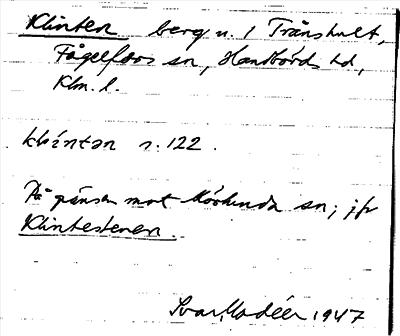 Klinten berg n. i Trånshult,
Fågelfors sn, Handbörds hd,
Klm. l.
klíntən n. 122.
På gränsen mot Mörlunda sn; jfr
Klintestenen.
Ivar Modéer 1947